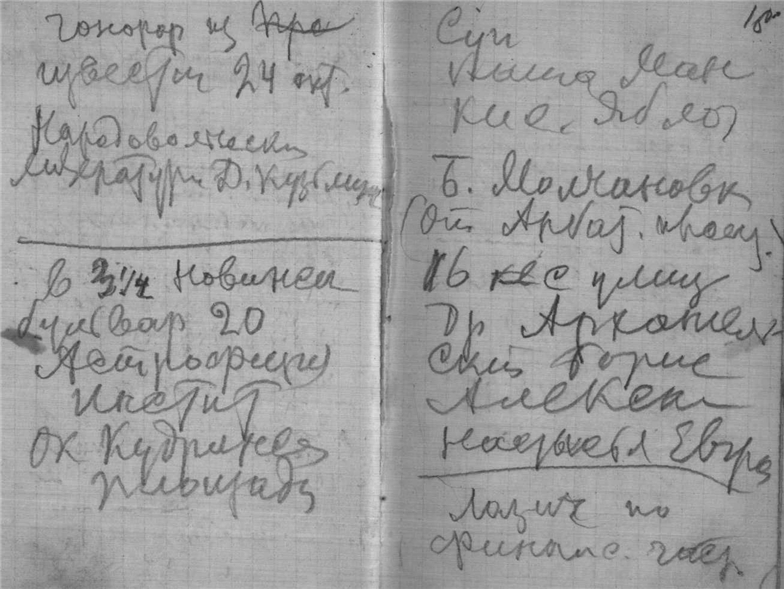 гонорар из
известия 24 окт.
Народовольческ
литератур Д. Кузьмин
В 3 1/4 Новинск
бульвар 20
Астрофизи
Инстит
ок Кудринск
площади
Суп
Ман
кис. Ябло
Б. Молчановк
(от Арбат. площ.)
16 улиц
Др Архангель
ский Борис
Алексеи
Евгра
по
финанс. част.